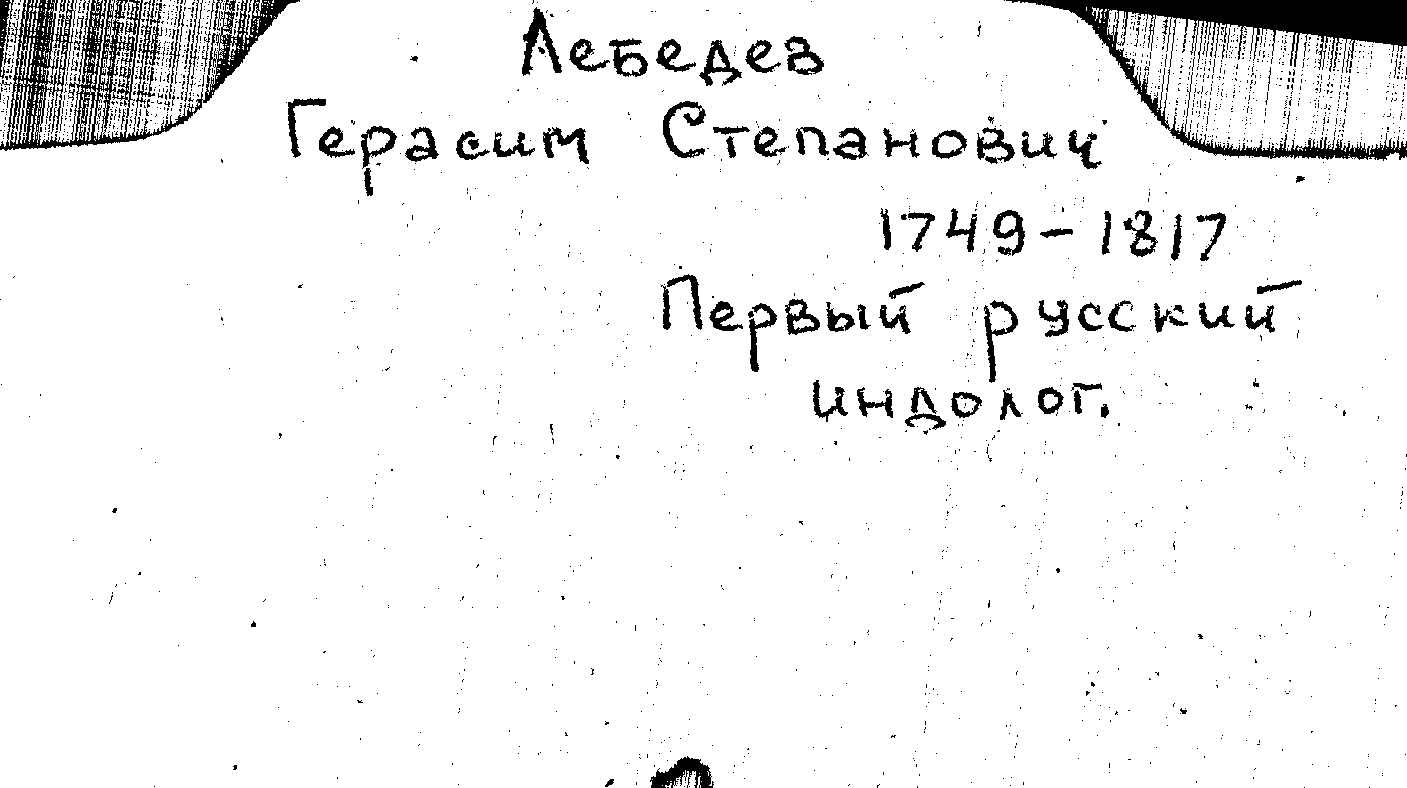 Лебедев
Герасим Степанович
1749-1817
Первый русский
индолог.